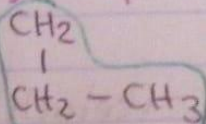 CH2
|
CH2 – CH3